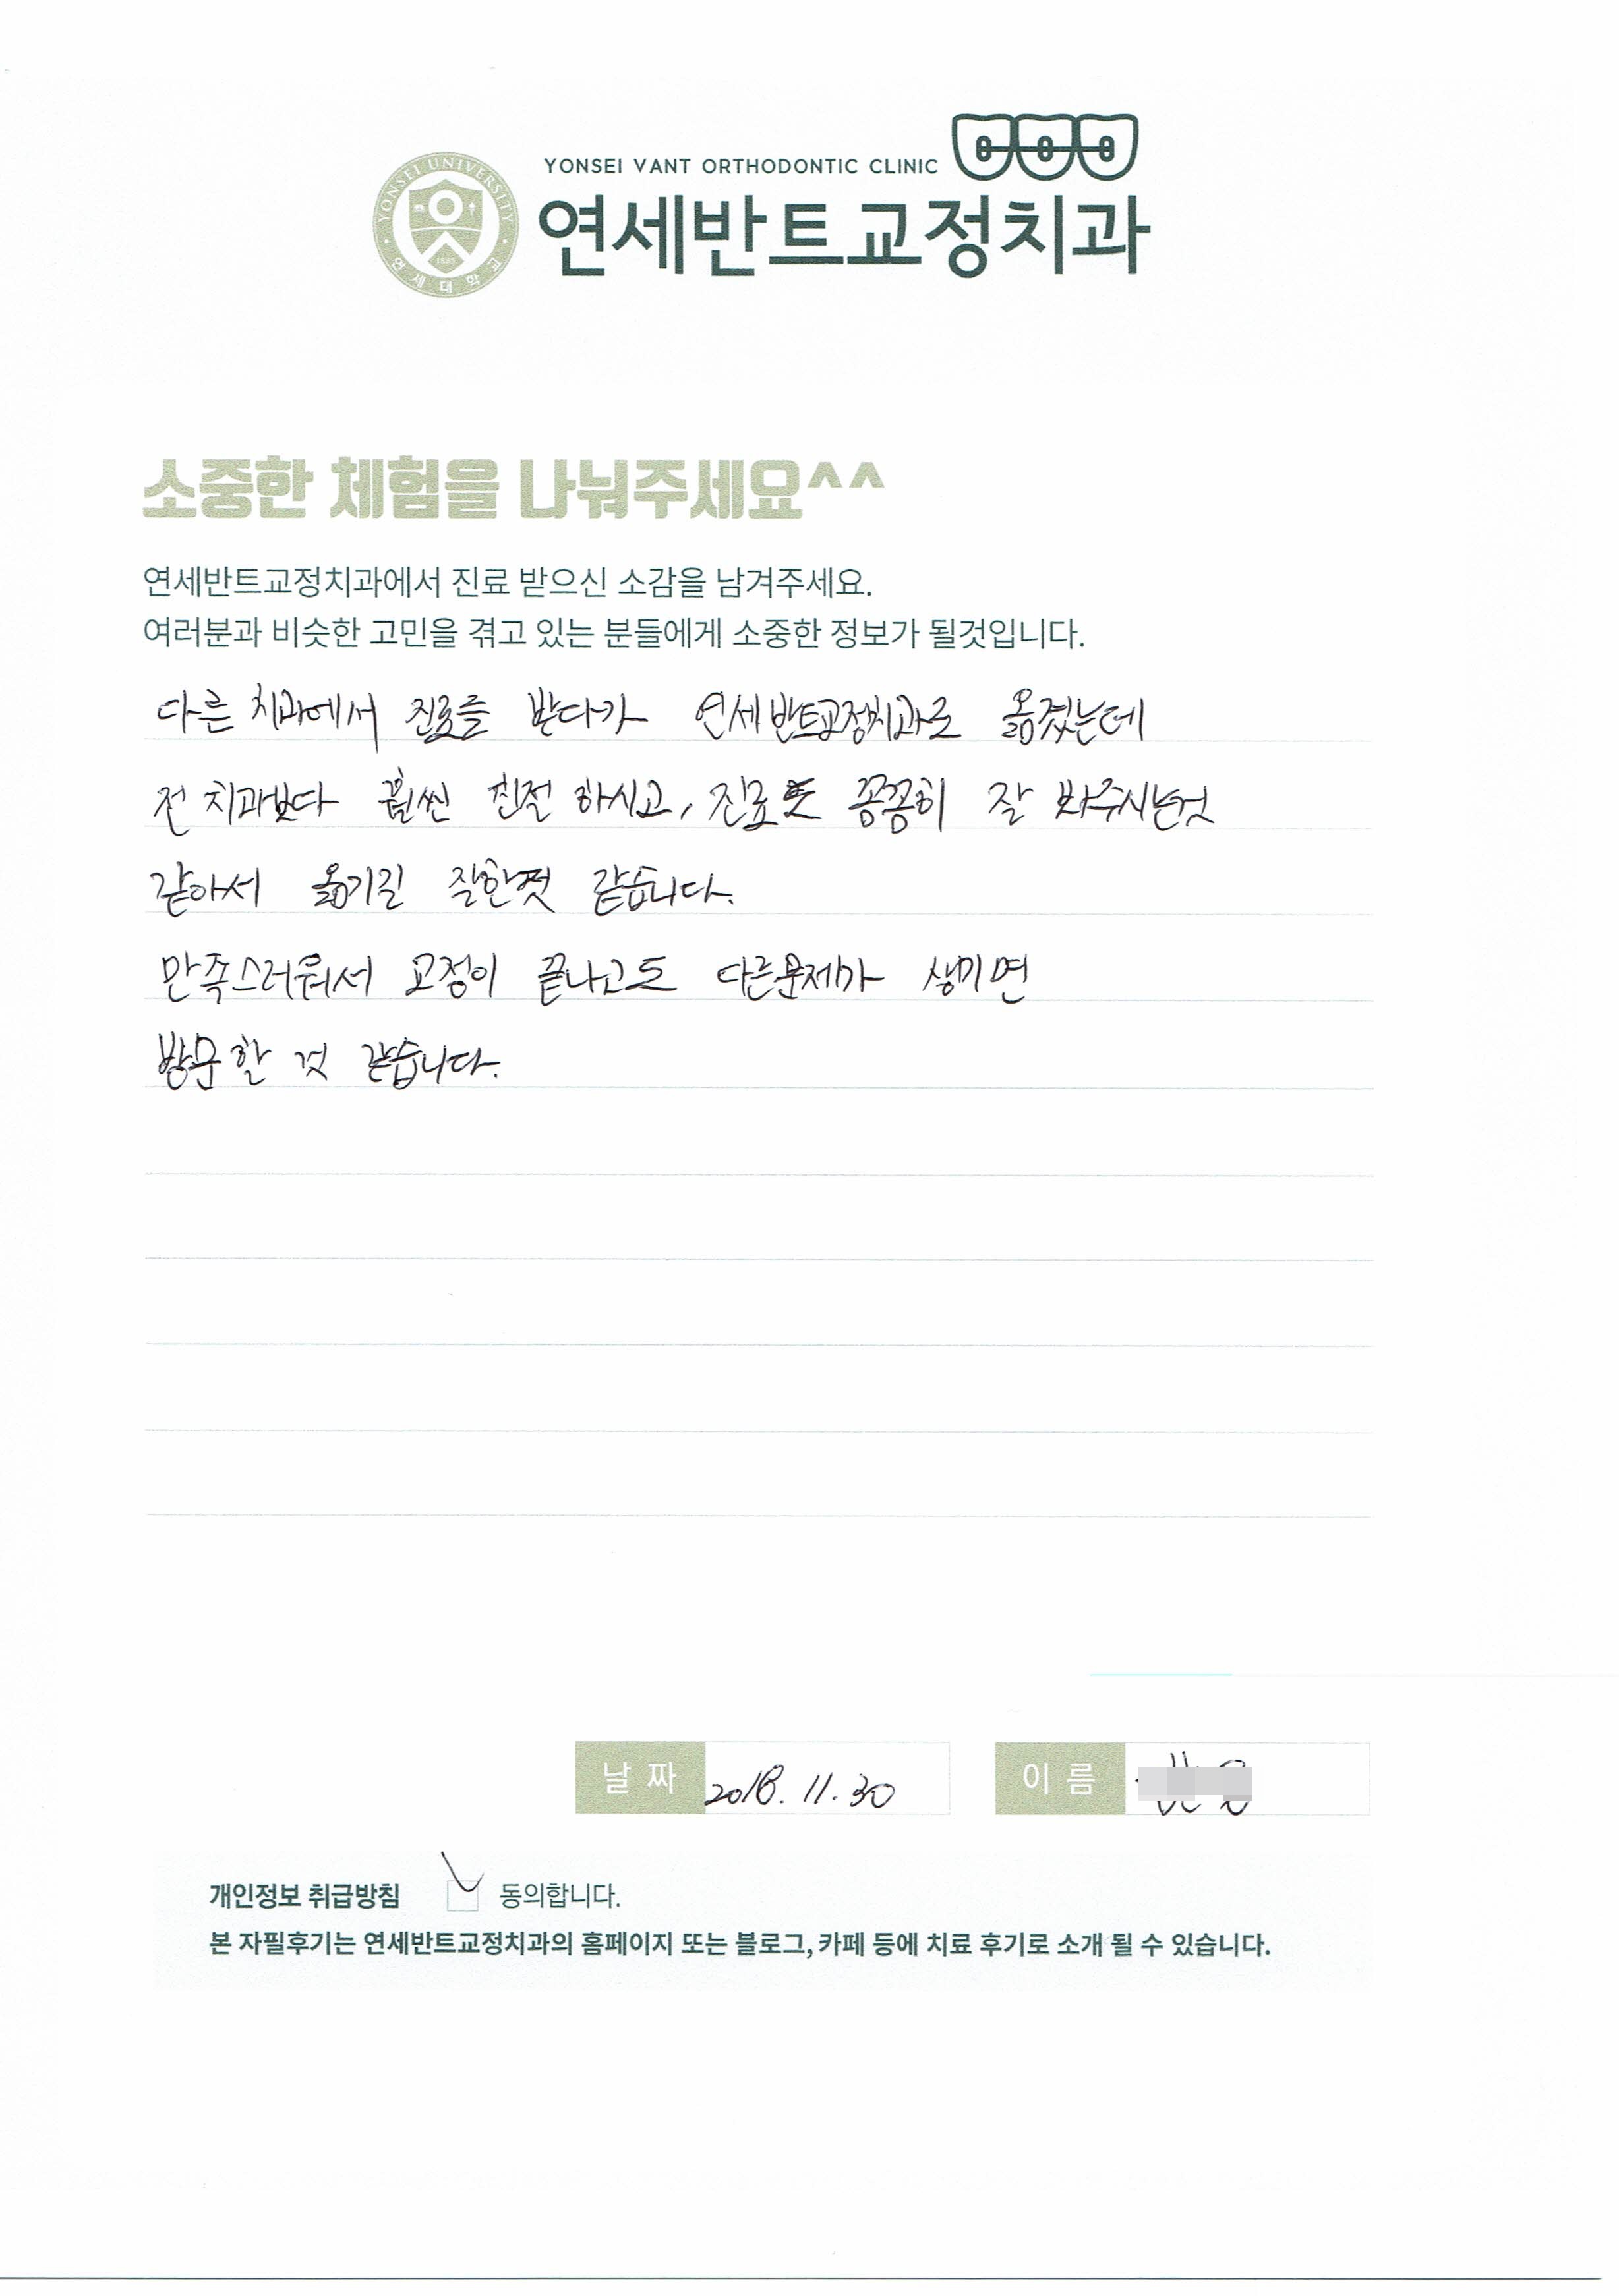 YONSEI VANT ORTHODONTIC CLINIC
YONSEI UNIVERSITY
1885
연세대학교
연세반트교정치과
소중한 체험을 나눠주세요^^
연세반트교정치과에서 진료 받으신 소감을 남겨주세요.
여러분과 비슷한 고민을 겪고 있는 분들에게 소중한 정보가 될것입니다.
다른 치과에서 진료를 받다가 연세반트교정치과로 옮겼는데
전 치과보다 훨씬 친절 하시고, 진료도 꼼꼼히 잘 봐주시는것
같아서 옮기길 잘한것 같습니다.
만족스러워서 교정이 끝나고도 다른문제가 생기면
방문할 것 같습니다.
날짜 2018. 11. 30
이름
개인정보 취급방침 동의합니다.
본 자필후기는 연세반트교정치과의 홈페이지 또는 블로그, 카페 등에 치료 후기로 소개 될 수 있습니다.